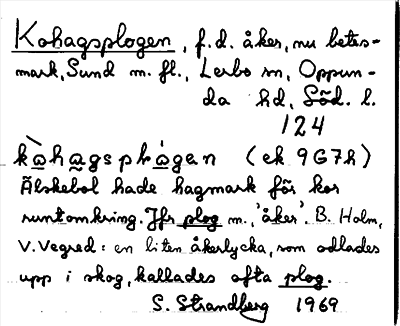 Kohagsplogen, f.d. åker, nu betes-
mark, Sund m. fl., Lerbo sn, Oppun-
da hd, Söd. l.
124
(ek 9G7h)
Älskebol hade hagmark för kor
runtomkring. Jfr plog m., 'åker'. B. Holm,
V. Vegred: en liten åkerlycka, som odlades
upp i skog, kallades ofta plog.
S. Strandberg 1969